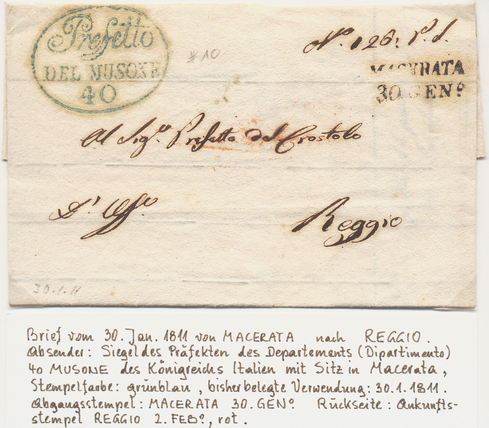 Prefetto
DEL MUSONE
40
#10
N.º 126. P. S.
MACERATA
30 GENº
Al Sigr. Prefetto del Crostolo
D'Uffo.
Reggio
30.1.11
Brief vom 30. Jan. 1811 von MACERATA nach REGGIO.
Absender: Siegel des Präfekten des Departements (Dipartimento)
40 MUSONE des Königreichs Italien mit Sitz in Macerata,
Stempelfarbe: grünblau, bisher belegte Verwendung: 30.1.1811.
Abgangsstempel: MACERATA 30. GENº. Rückseite: Ankunfts-
stempel REGGIO 2. FEBº, rot.